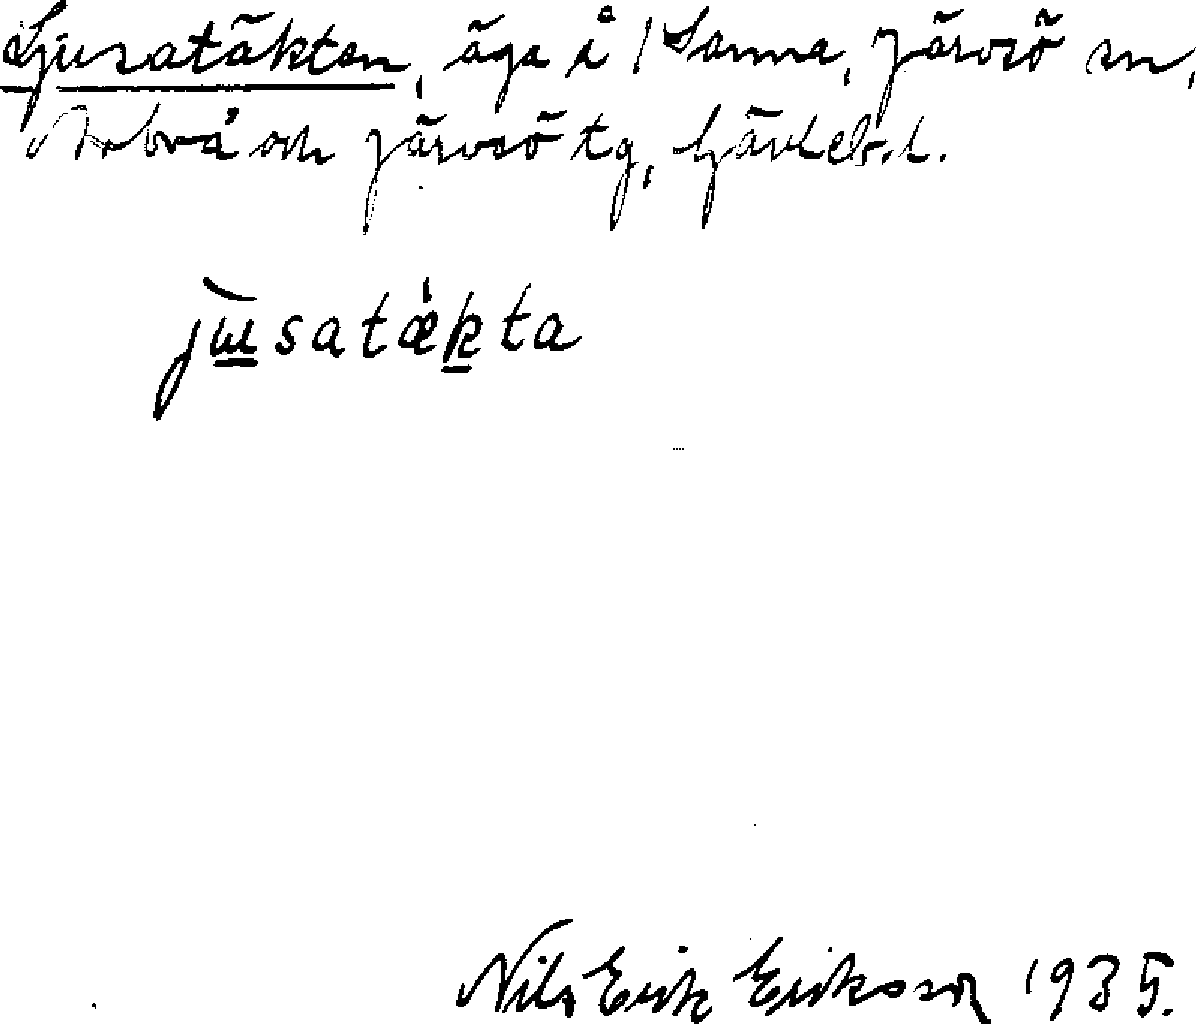 Ljusatäkten, äga i Sanna, Järvsö sn,
Arbrå och Järvsö tg, Gävleb. l.
jɯsatækta
Nils Erik Eriksson 1935.